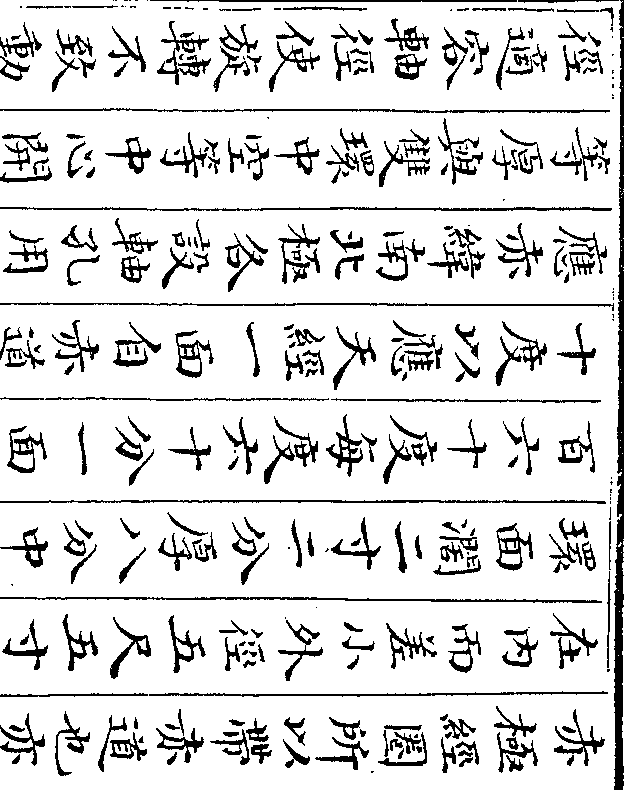 赤極經圈所以帶赤道也亦
在內而差小外徑五尺五寸
環面濶二寸二分厚八分中
百六十度每度六十分一面
十度以應天經一面自赤道
應赤緯南北極各設軸孔用
等厚與雙環中空等中心開
徑適容軸徑使旋轉不致動